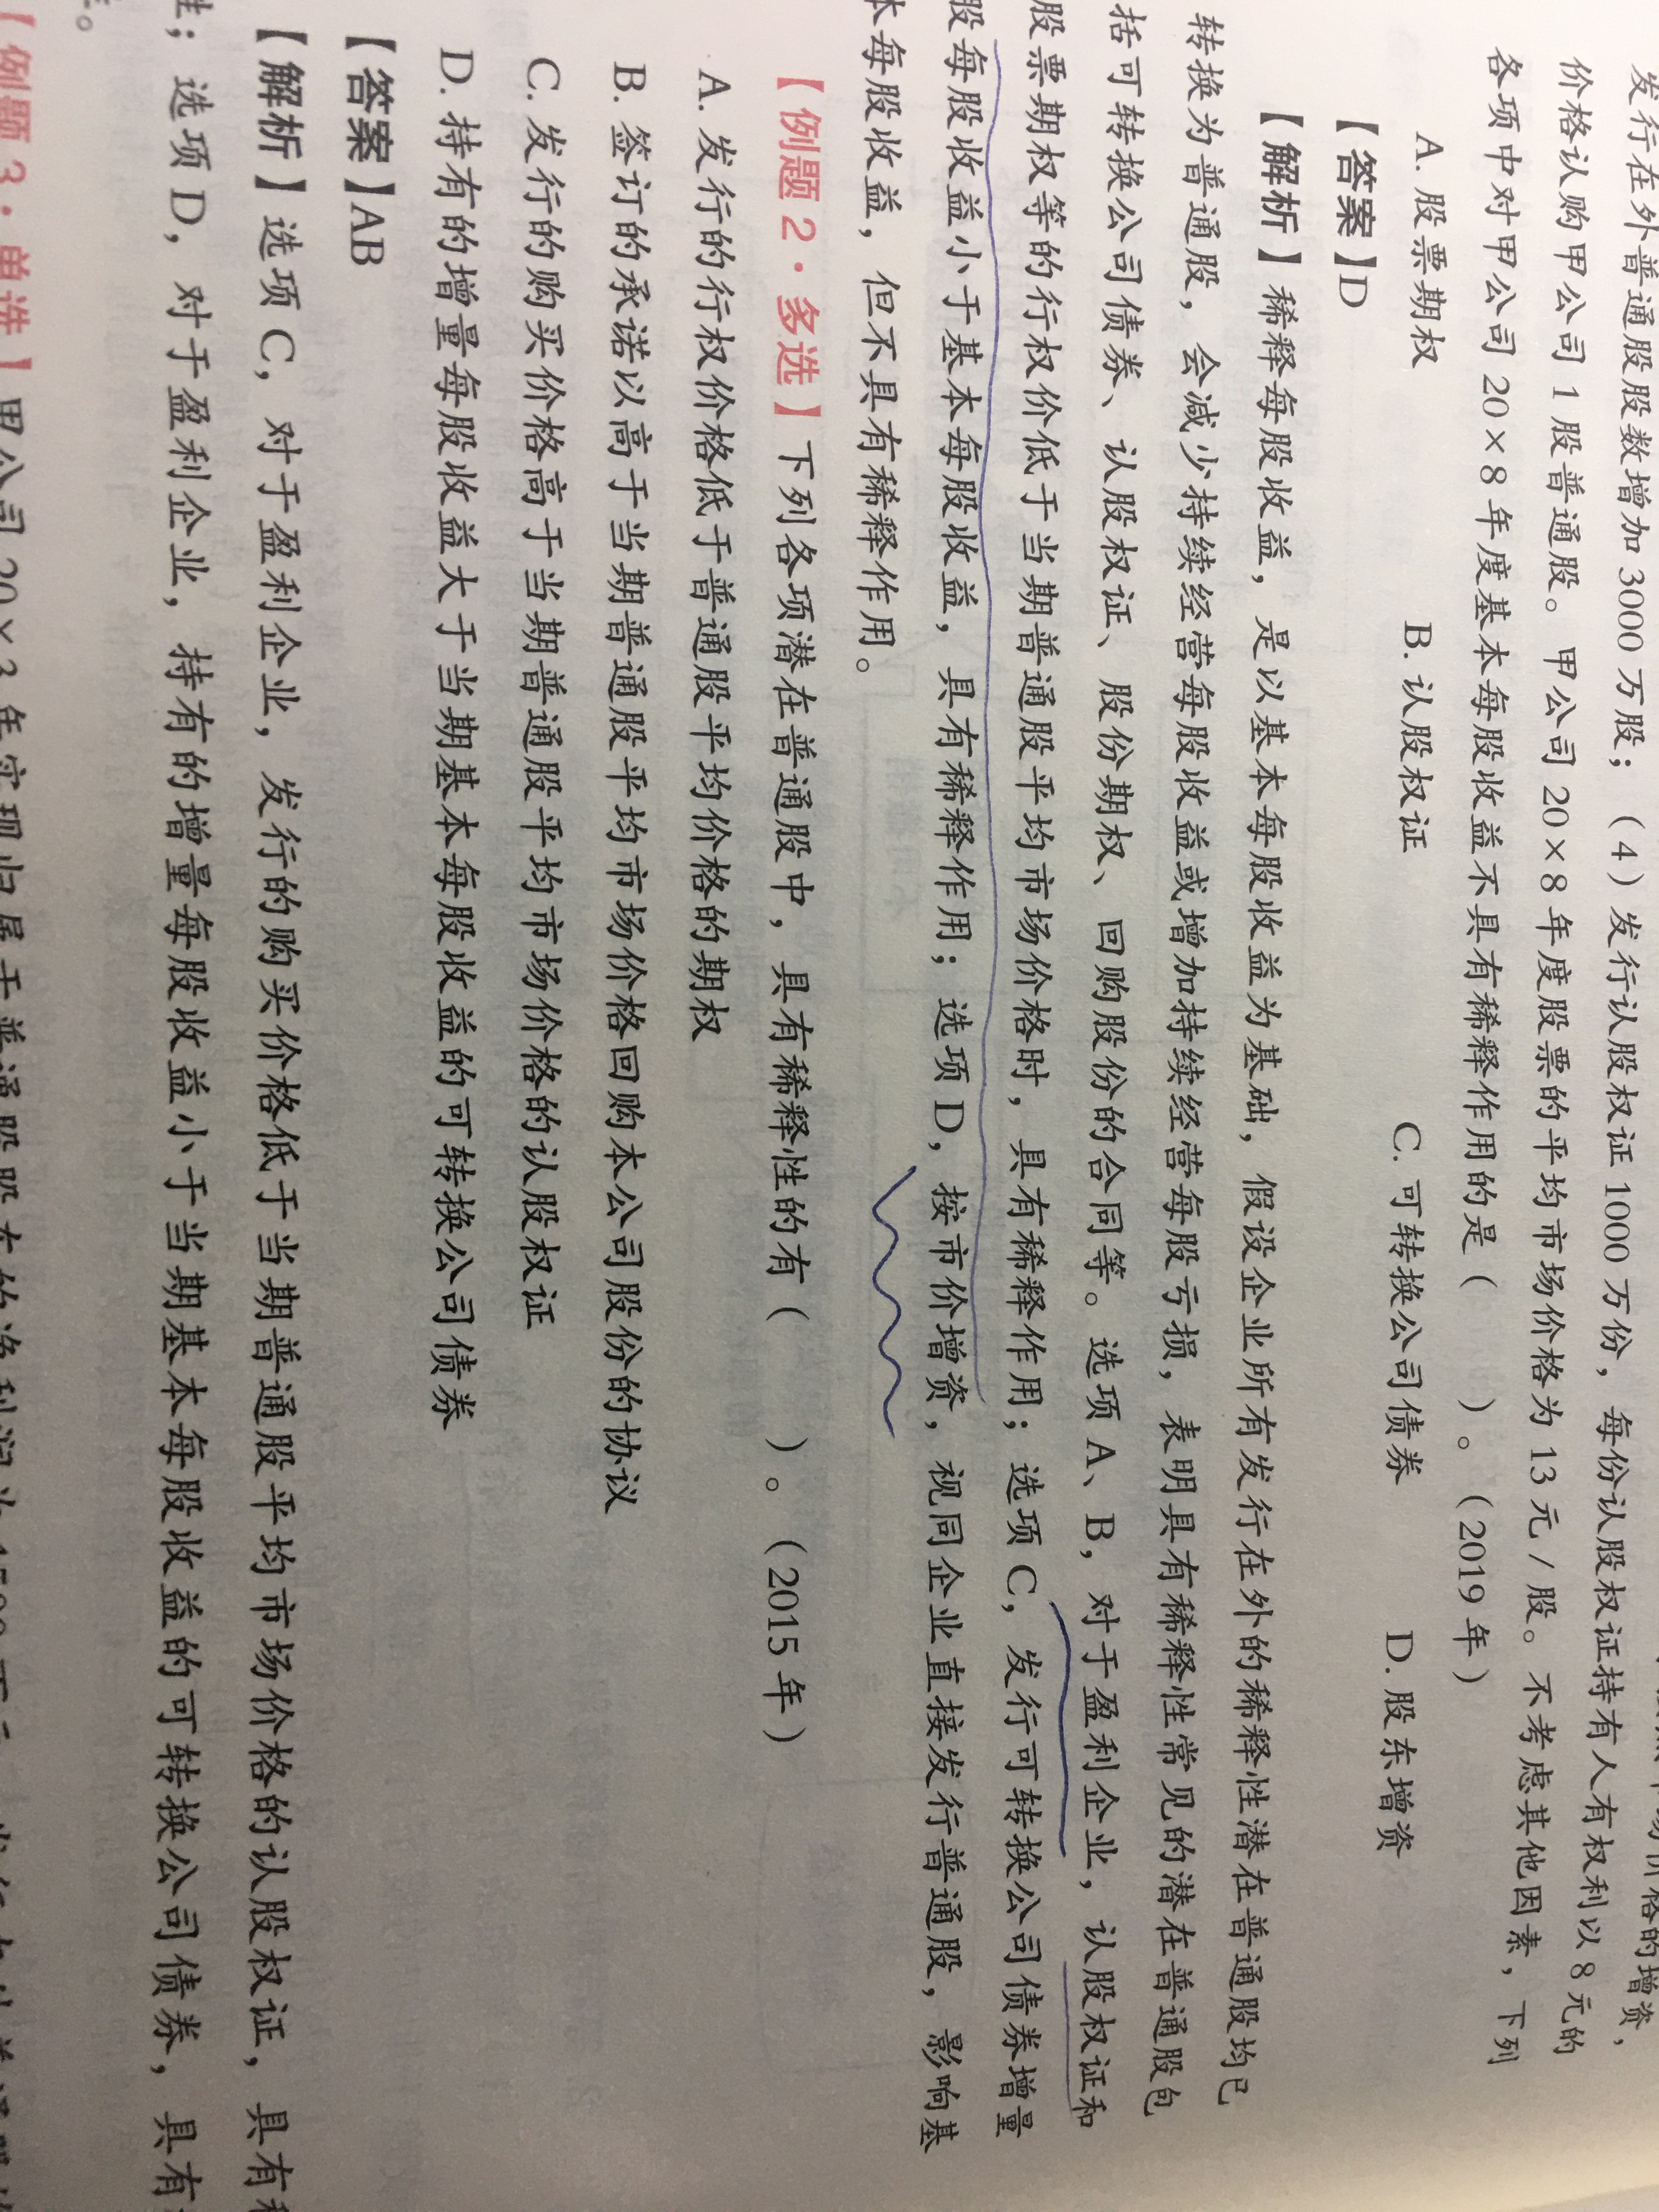 发行在外普通股股数增加 3000 万股；（4）发行认股权证 1000 万份，每份认股权证持有人有权利以 8 元的
价格认购甲公司 1 股普通股。甲公司 20×8 年度股票的平均市场价格为 13 元 / 股。不考虑其他因素，下列
各项中对甲公司 20×8 年度基本每股收益不具有稀释作用的是（ ）。（2019 年）
A. 股票期权 B. 认股权证 C. 可转换公司债券 D. 股东增资
【答案】D
【解析】稀释每股收益，是以基本每股收益为基础，假设企业所有发行在外的稀释性潜在普通股均已
转换为普通股，会减少持续经营每股收益或增加持续经营每股亏损，表明具有稀释性常见的潜在普通股包
括可转换公司债券、认股权证、股份期权、回购股份的合同等。选项 A、B，对于盈利企业，认股权证和
股票期权等的行权价低于当期普通股平均市场价格时，具有稀释作用；选项 C，发行可转换公司债券增量
股每股收益小于基本每股收益，具有稀释作用；选项 D，按市价增资，视同企业直接发行普通股，影响基
本每股收益，但不具有稀释作用。
【例题 2·多选】下列各项潜在普通股中，具有稀释性的有（ ）。（2015 年）
A. 发行的行权价格低于普通股平均价格的期权
B. 签订的承诺以高于当期普通股平均市场价格回购本公司股份的协议
C. 发行的购买价格高于当期普通股平均市场价格的认股权证
D. 持有的增量每股收益大于当期基本每股收益的可转换公司债券
【答案】AB
【解析】选项 C，对于盈利企业，发行的购买价格低于当期普通股平均市场价格的认股权证，具有
性；选项 D，对于盈利企业，持有的增量每股收益小于当期基本每股收益的可转换公司债券，具有
【例题 3·单选】甲公司 20×3 年实现归属于普通股股东的净利润为